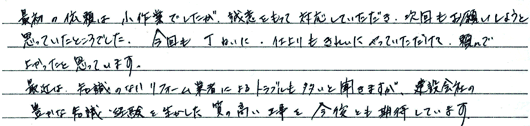 最初の依頼は小作業でしたが、誠意をもって対応していただき、次回もお願いしようと
思っていたところでした。今回も丁ねいに、仕上りもきれいにやっていただけて、頼んで
よかったと思っています。
最近は、知識のないリフォーム業者によるトラブルも多いと聞きますが、建設会社の
豊かな知識・経験を生かした質の高い工事を今後とも期待しています。